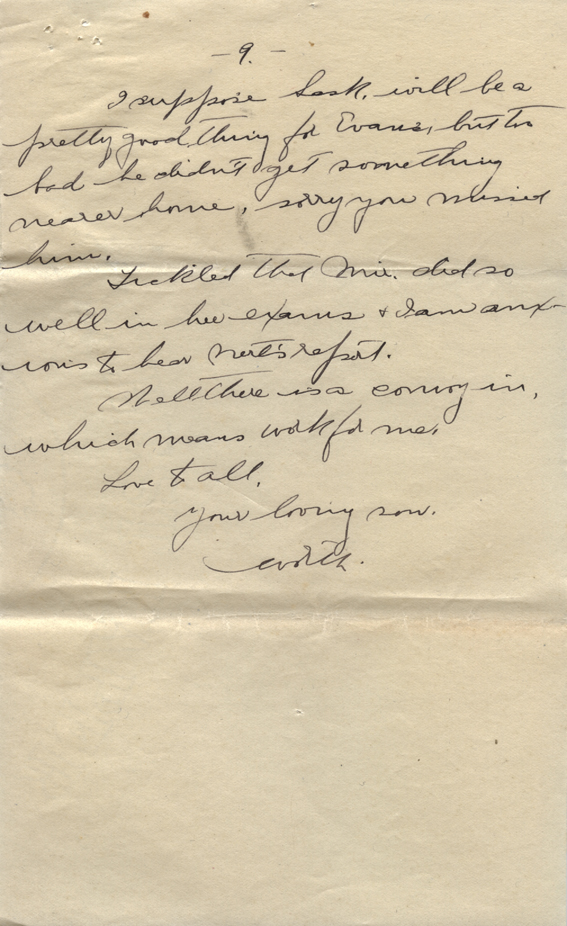 - 9. -
I suppose Sask. will be a
pretty good thing for Evans, but too
bad he didn't get something
nearer home, sorry you missed
him.
Tickled that Mir. did so
well in her exams & I am anx-
ious to hear Nort's report.
Well there is a convoy in,
which means work for me.
Love to all.
Your loving son.
Worth.